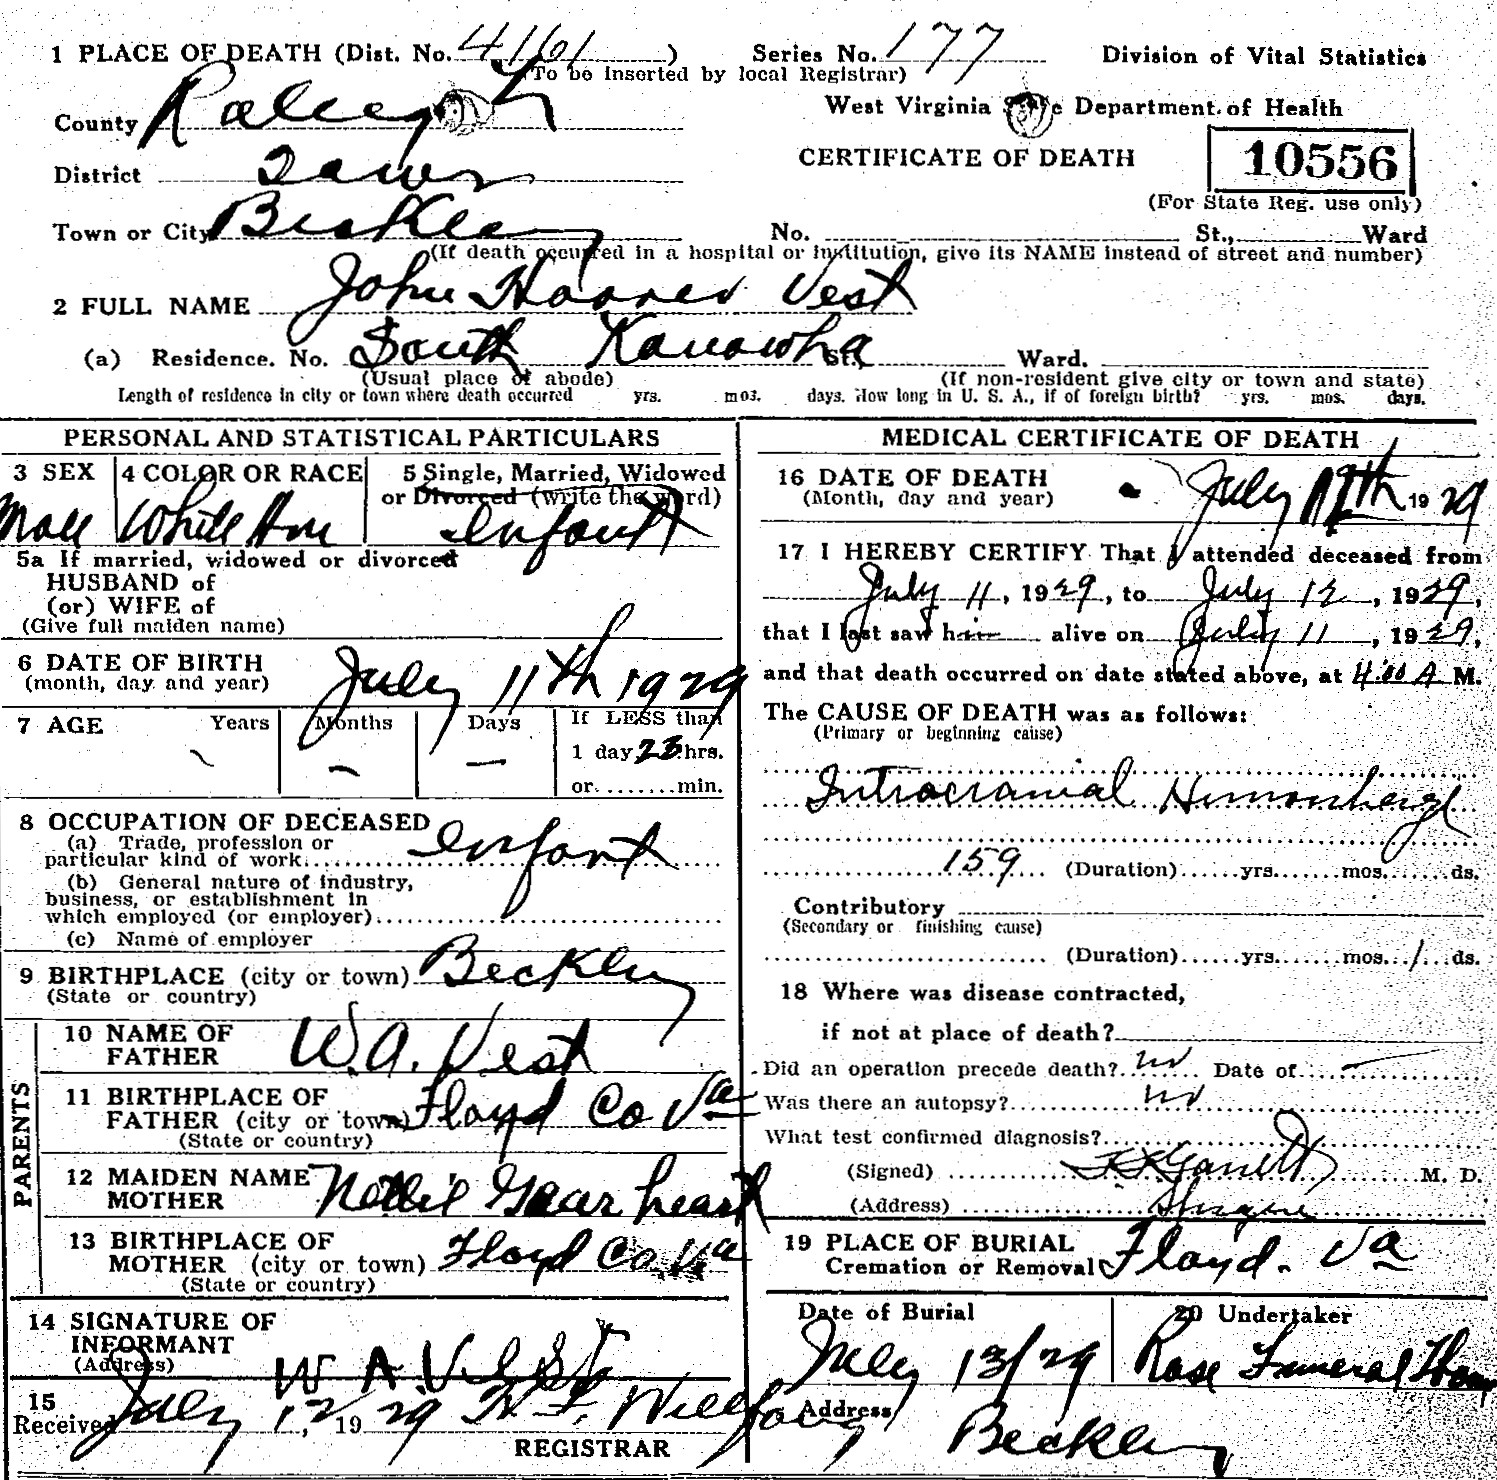 1 PLACE OF DEATH (Dist. No. 4161 ) Series No. 177 Division of Vital Statistics
(To be inserted by local Registrar)
County Raleigh West Virginia State Department of Health
CERTIFICATE OF DEATH 10556
District Town
(For State Reg. use only)
Town or City Beckley No. St., Ward
(If death occurred in a hospital or institution, give its NAME instead of street and number)
2 FULL NAME John Hoover Vest
(a) Residence. No. South Kanawha St. Ward.
(Usual place of abode) (If non-resident give city or town and state)
Length of residence in city or town where death occurred yrs. mos. days. How long in U. S. A., if of foreign birth? yrs. mos. days.
PERSONAL AND STATISTICAL PARTICULARS
3 SEX 4 COLOR OR RACE 5 Single, Married, Widowed
or Divorced (write the word)
Male White Am Infant
5a If married, widowed or divorced
HUSBAND of
(or) WIFE of
(Give full maiden name)
6 DATE OF BIRTH
(month, day and year) July 11th 1929
7 AGE Years Months Days If LESS than
1 day 23 hrs.
or........min.
8 OCCUPATION OF DECEASED
(a) Trade, profession or
particular kind of work Infant
(b) General nature of industry,
business, or establishment in
which employed (or employer)
(c) Name of employer
9 BIRTHPLACE (city or town) Beckley
(State or country)
PARENTS
10 NAME OF
FATHER W.A. Vest
11 BIRTHPLACE OF
FATHER (city or town) Floyd Co Va
(State or country)
12 MAIDEN NAME
MOTHER Nettie Gearheart
13 BIRTHPLACE OF
MOTHER (city or town) Floyd Co. Va
(State or country)
14 SIGNATURE OF
INFORMANT
(Address) W A Vest
15
Received July 12, 1929
REGISTRAR
MEDICAL CERTIFICATE OF DEATH
16 DATE OF DEATH
(Month, day and year) July 12th 1929
17 I HEREBY CERTIFY That I attended deceased from
July 11, 1929, to July 12, 1929,
that I last saw him alive on July 11, 1929,
and that death occurred on date stated above, at 4:00 A M.
The CAUSE OF DEATH was as follows:
(Primary or beginning cause)
Intracranial Hemorrhage
159 (Duration)......yrs.......mos.......ds.
Contributory
(Secondary or finishing cause)
(Duration)......yrs.......mos. 1 ds.
18 Where was disease contracted,
if not at place of death?
Did an operation precede death? no Date of —
Was there an autopsy? no
What test confirmed diagnosis?
(Signed) Garrett M. D.
(Address)
19 PLACE OF BURIAL
Cremation or Removal Floyd. Va
Date of Burial 20 Undertaker
July 13/29 Rose Funeral Home
Address
Beckley